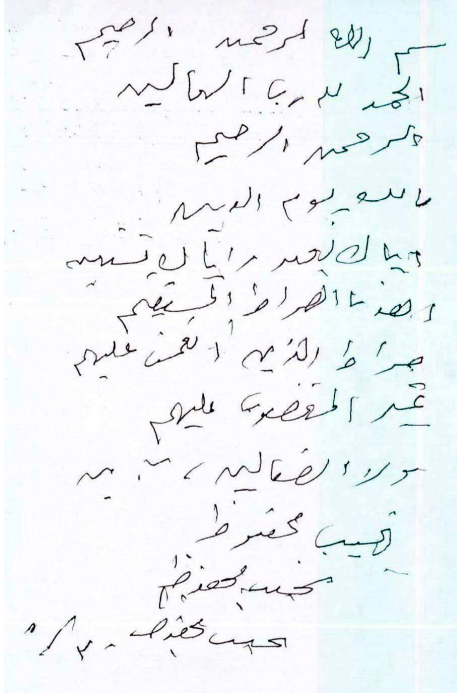 بسم الله الرحمن الرحيم
الحمد لله رب العالمين
الرحمن الرحيم
مالك يوم الدين
اياك نعبد واياك نستعين
اهدنا الصراط المستقيم
صراط الذين أنعمت عليهم
غير المغضوب عليهم
ولا الضالين، آمين
نجيب محفوظ
نجيب محفوظ
نجيب محفوظ